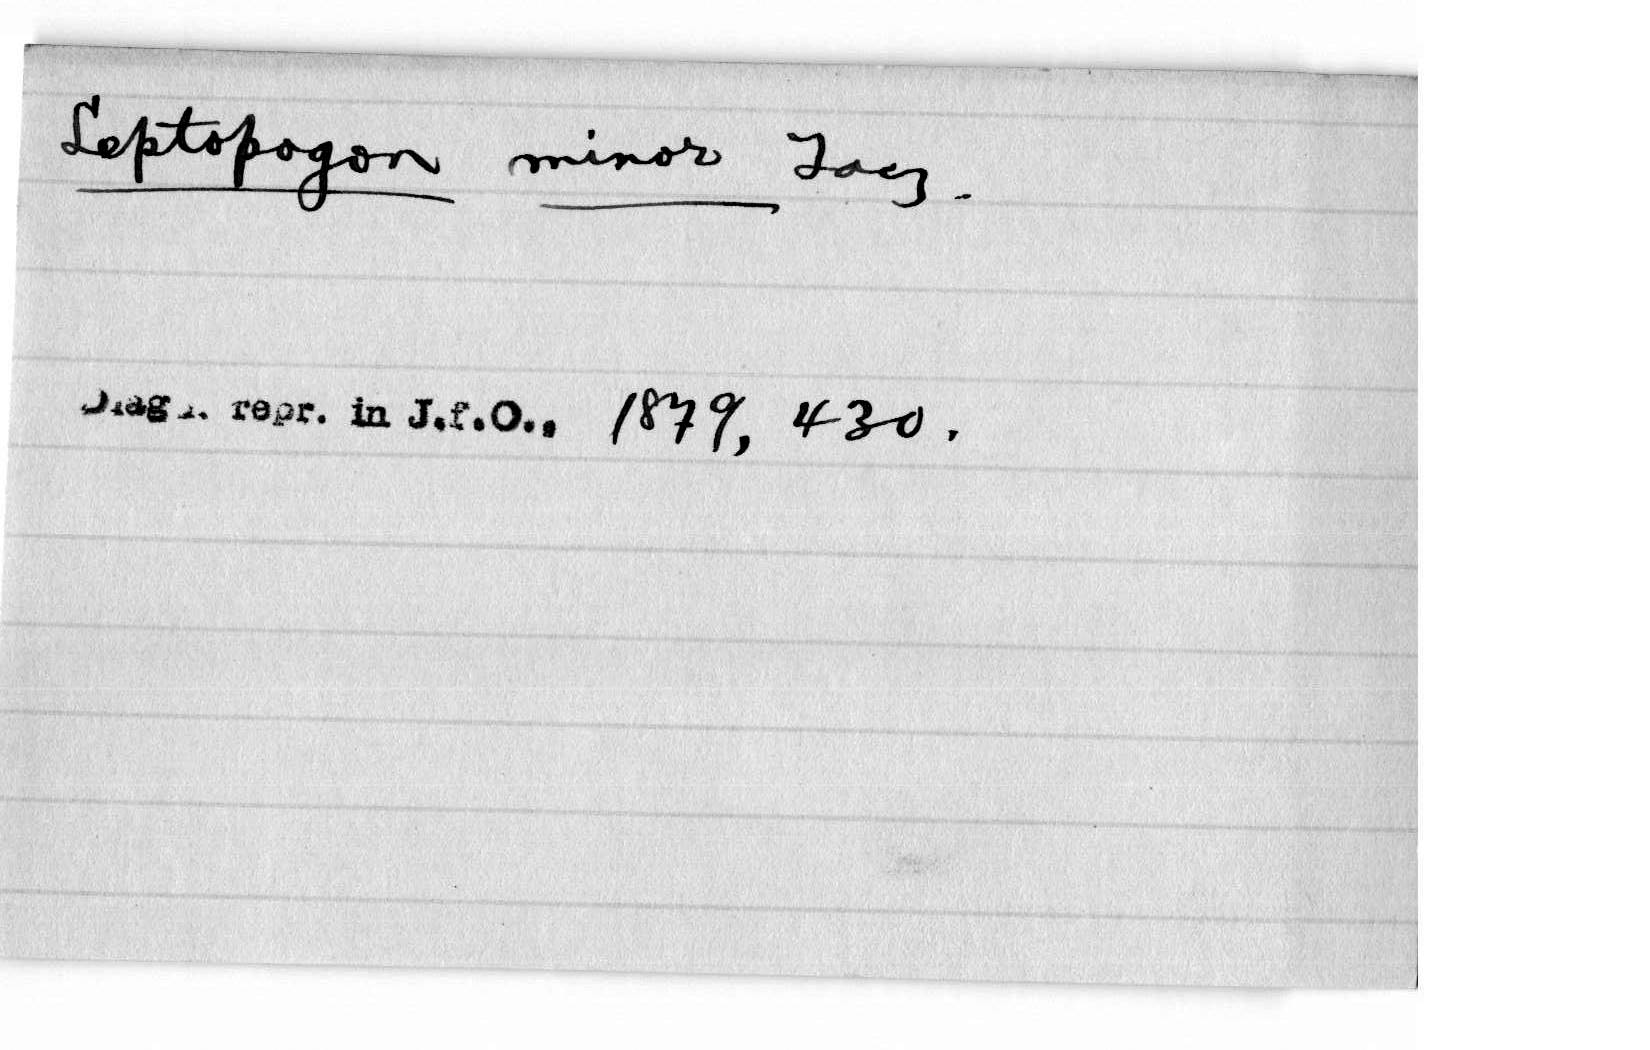 Leptopogon minor Tacz.
Diagn. repr. in J.f.O., 1879, 430.